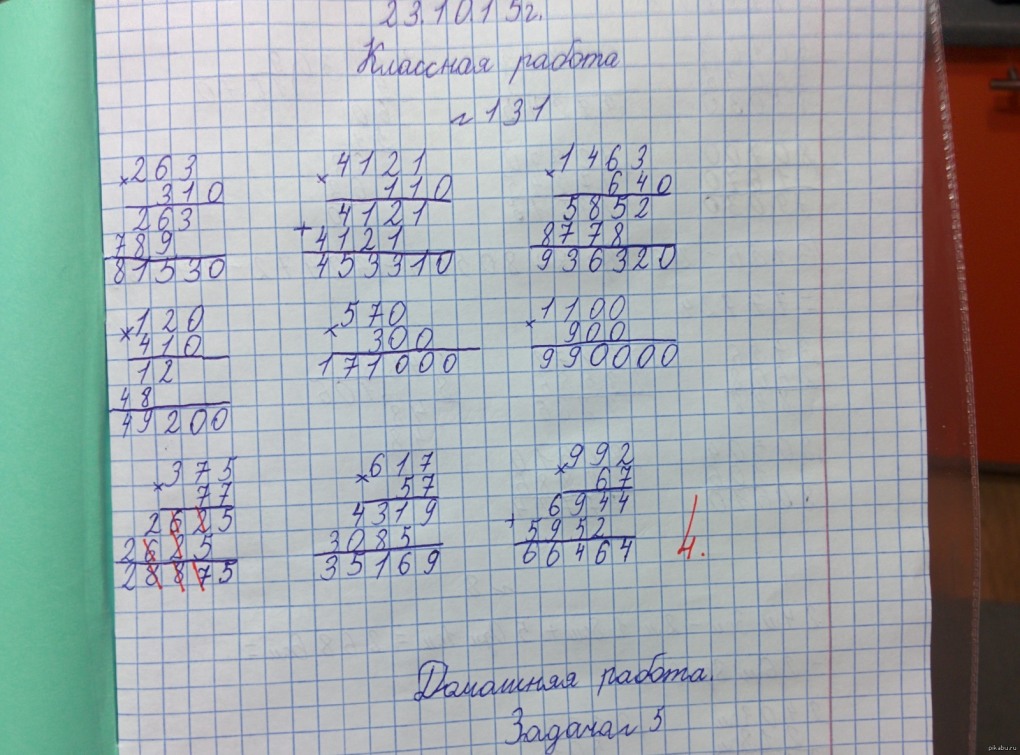 23.10.15г.
Классная работа
№131
×263 ×4121 ×1463
310 110 640
263 4121 5852
789 +4121 8778
81530 453310 936320
×120 ×570 ×1100
410 300 900
12 171000 990000
48
49200
×375 ×617 ×992
77 57 67
2625 4319 6944
2625 3085 +5952
28875 35169 66464
4.
Домашняя работа.
Задача№5
pikabu.ru